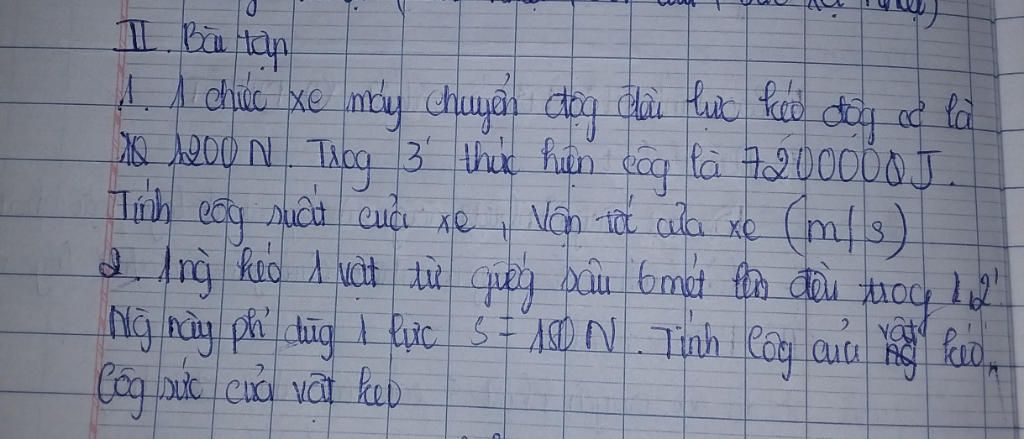 II. Bài tập
1. 1 chiếc xe máy chuyển độg đều lực kéo độg cơ là
1200N. Trog 3' thực hiện côg là 7200000J.
Tính côg suất của xe, vận tốc của xe (m/s)
2. 1 ng kéo 1 vật từ giếg sâu 6 mét lên đều trog 1,2'
Ng này phải dùg 1 lực = 180N. Tính côg của vật kéo,
côg sức của vật kéo